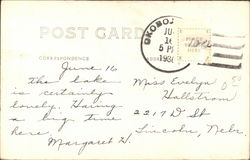 POST CARD
OKOBOJ
JU
16
5 PM
1930
CORRESPONDENCE
June 16
The lake
is certainly
lovely. Having
a big time
here.
Margaret H.
Miss Evelyn
Hallstrom
2217 D St
Lincoln, Nebr.